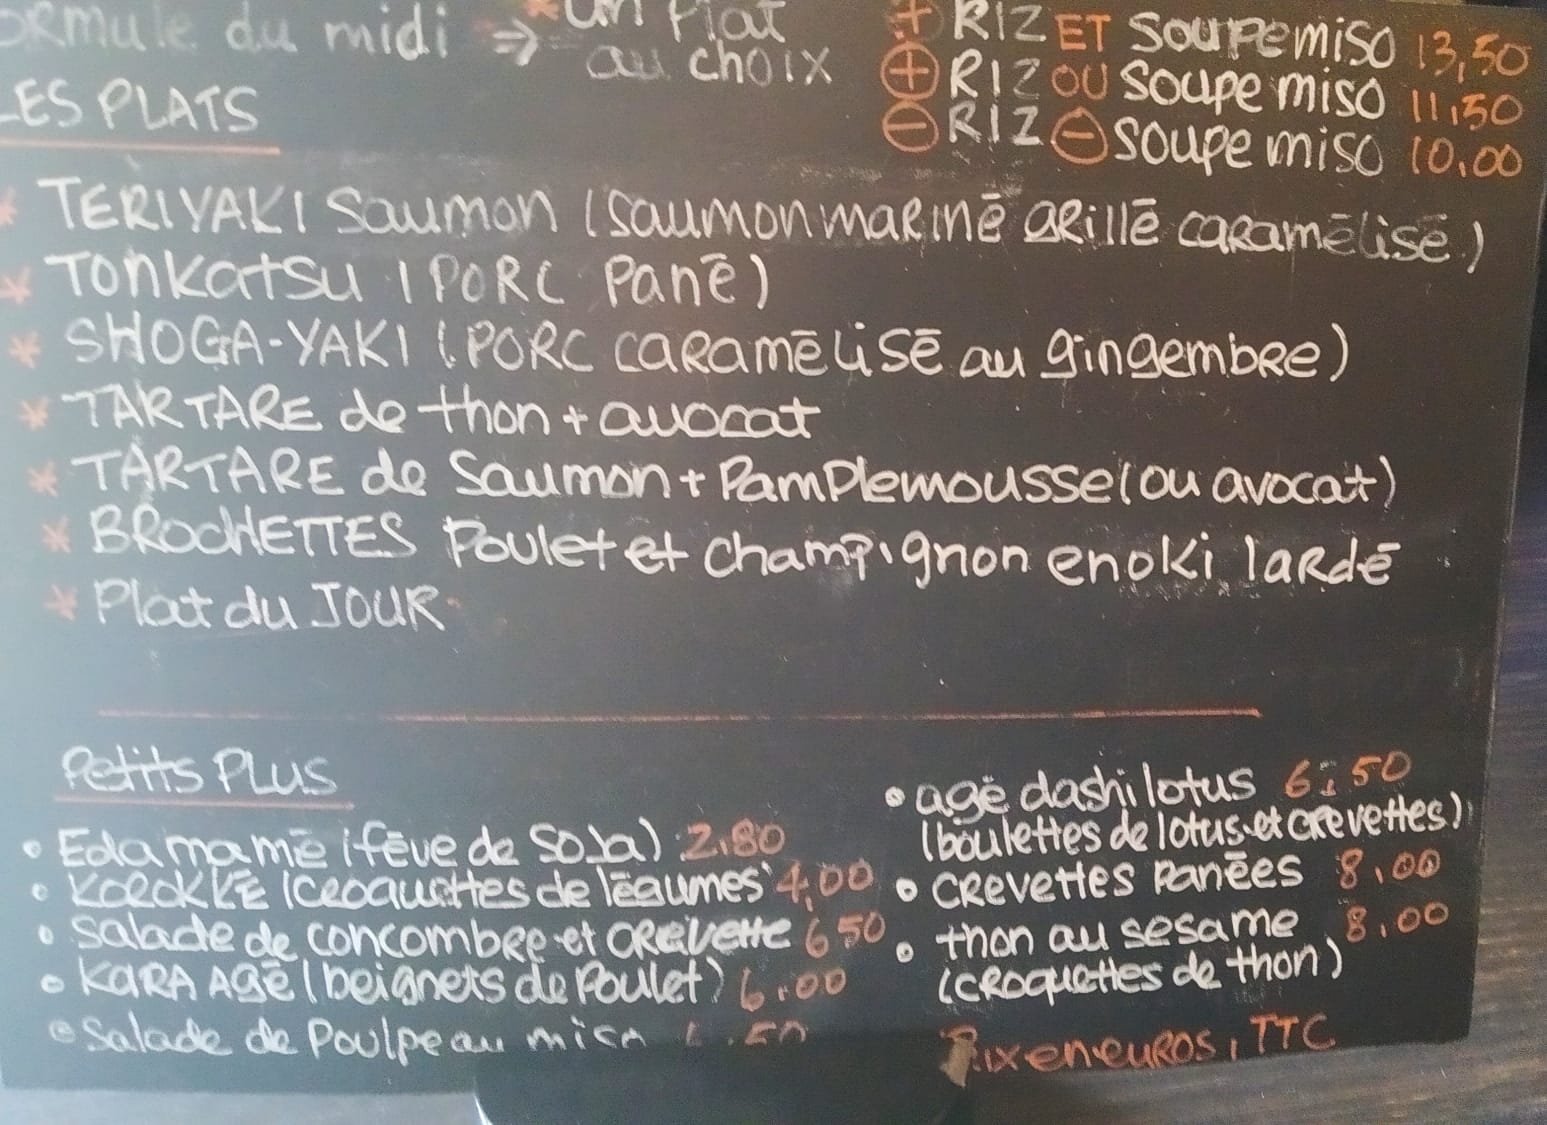 ormule du midi → * un Plat au choix
+ RIZ ET Soupe miso 13,50
⊕ RIZ OU Soupe miso 11,50
⊖ RIZ ⊖ Soupe miso 10,00
LES PLATS
* TERIYAKI Saumon (Saumon mariné grillé caramélisé)
* TONKATSU (PORC Pané)
* SHOGA-YAKI (PORC caramélisé au gingembre)
* TARTARE de thon + avocat
* TARTARE de Saumon + Pamplemousse (ou avocat)
* BROCHETTES Poulet et champignon enoki lardé
* Plat du JOUR
Petits PLUS
• Edamamé (fève de Soja) 2,80
• KOROKKÉ (croquettes de légumes) 4,00
• Salade de concombre et crevette 6,50
• KARA AGÉ (beignets de Poulet) 6,00
• Salade de Poulpe au miso 6,50
• agé dashi lotus 6,50
(boulettes de lotus et crevettes)
• crevettes Panées 8,00
• thon au sesame 8,00
(croquettes de thon)
Prix en euros, TTC